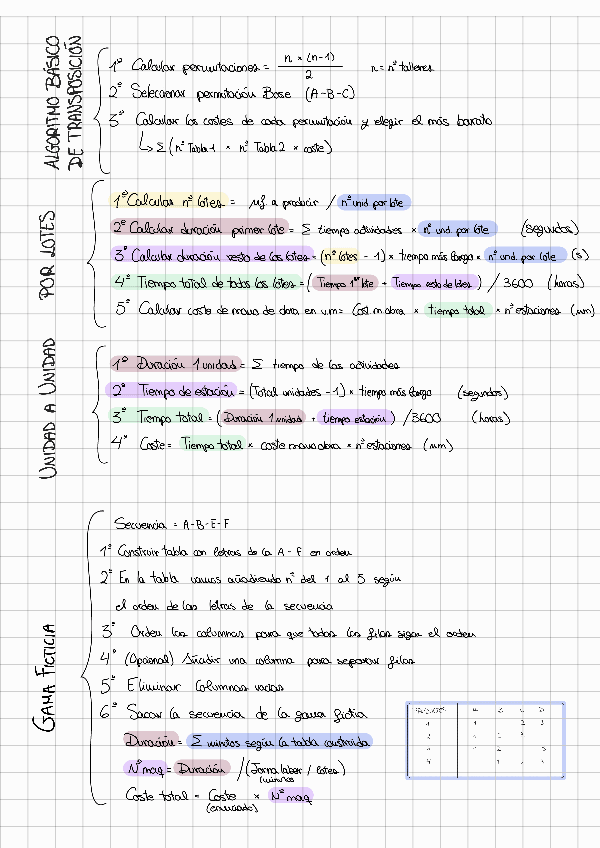 ALGORITMO BÁSICO
DE TRANSPOSICIÓN
1º Calcular permutaciones = n × (n-1) / 2 n = nº talleres
2º Seleccionar permutación Base (A-B-C)
3º Calcular los costes de cada permutación y elegir el más barato
↳ Σ (nº Tabla 1 × nº Tabla 2 × coste)
POR LOTES
1º Calcular nº lotes = a producir / nº unid por lote
2º Calcular duración primer lote = Σ tiempo actividades × nº und. por lote (segundos)
3º Calcular duración resto de los lotes = (nº lotes - 1) × tiempo más largo × nº und. por lote (s)
4º Tiempo total de todos los lotes = ( Tiempo 1er lote + Tiempo resto de lotes ) / 3600 (horas)
5º Calcular coste de mano de obra en um = Cos. m obra × tiempo total × nº estaciones (um)
UNIDAD A UNIDAD
1º Duración 1 unidad = Σ tiempo de las actividades
2º Tiempo de estación = (Total unidades - 1) × tiempo más largo (segundos)
3º Tiempo total = ( Duración 1 unidad + tiempo estación ) / 3600 (horas)
4º Coste = Tiempo total × coste mano obra × nº estaciones (um)
GAMA FICTICIA
Secuencia = A-B-E-F
1º Construir tabla con letras de la A - F en orden
2º En la tabla vamos añadiendo nº del 1 al 5 según
el orden de las letras de la secuencia
3º Orden las columnas para que todas las filas sigan el orden
4º (Opcional) Añadir una columna para separar filas
5º Eliminar Columnas vacias
6º Sacar la secuencia de la gama fictia
Duración = Σ mintos según la tabla construida
Nº maq = Duración / (Jorna labor / lotes)
(minutos
Coste total = Coste × Nº maq
(enunciado)